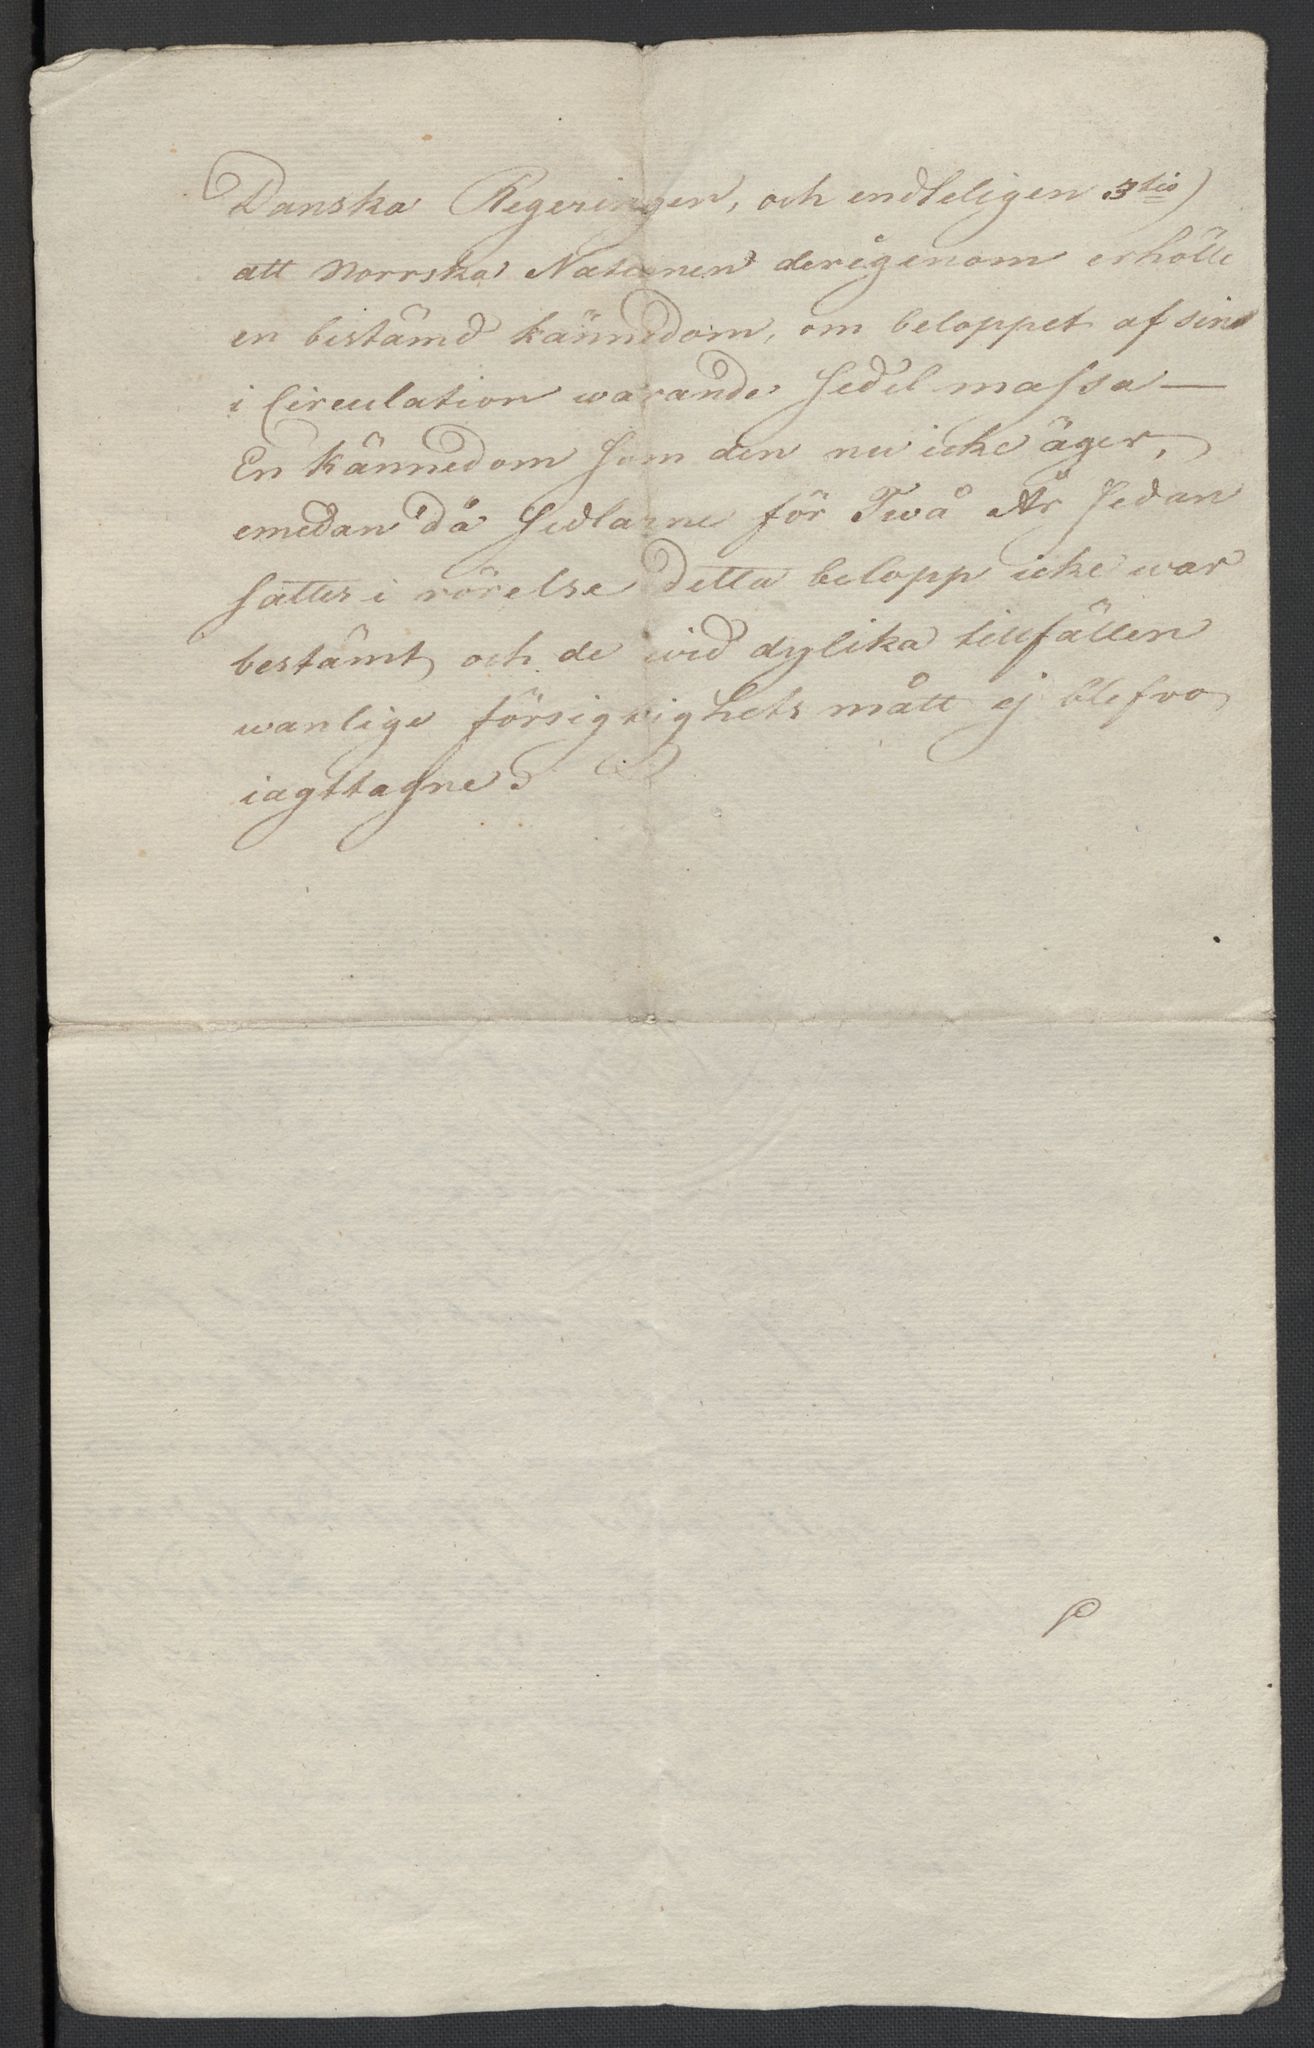 Danska Regeringen, och endteligen 3tio)
att Norrska Nationen derigenom erhölle
en bestämd kännedom, om beloppet af sine
i Circulation warande Sedel massa —
En kännedom som den nu icke äger,
emedan då Sedlarne för Twå År sedan
sattes i rörelse detta belopp icke war
bestämt, och de wid dylika tillfällen
wanlige försigtighets mått ej blefvo
iagttagne.